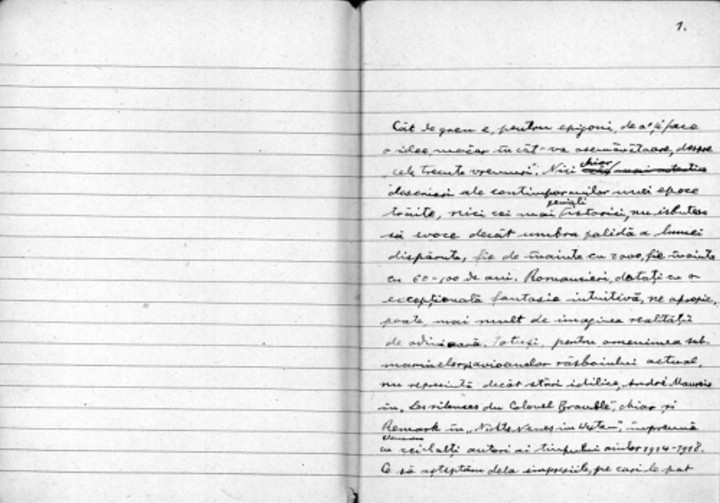 1.
Cât de greu e, pentru epigoni, de a'și face
o idee, măcar în cât-va asemănătoare, despre
„cele trecute vremuri". Nici chiar
descrieri ale contimporanilor unei epoce
trăite, nici cei mai geniali istorici, nu isbutesc
să evoce decât umbra palidă a lumei
dispărute, fie de înainte cu 2000, fie înainte
cu 60-100 de ani. Romancieri, dotați cu o
excepțională fantasie intuitivă, ne apropie,
poate, mai mult de imaginea realității
de odinioară. Totuși, pentru omenimea sub-
marinelor și avioanelor răsboiului actual,
nu represintă decât stări idilice, André Maurois
în „Les silences du Colonel Bramble", chiar și
Remark în „Nichts Neues im Westen", împreună
cu ceilalți autori ai timpului anilor 1914-1918.
Ce să așteptăm dela impresiile, pe cari le pot